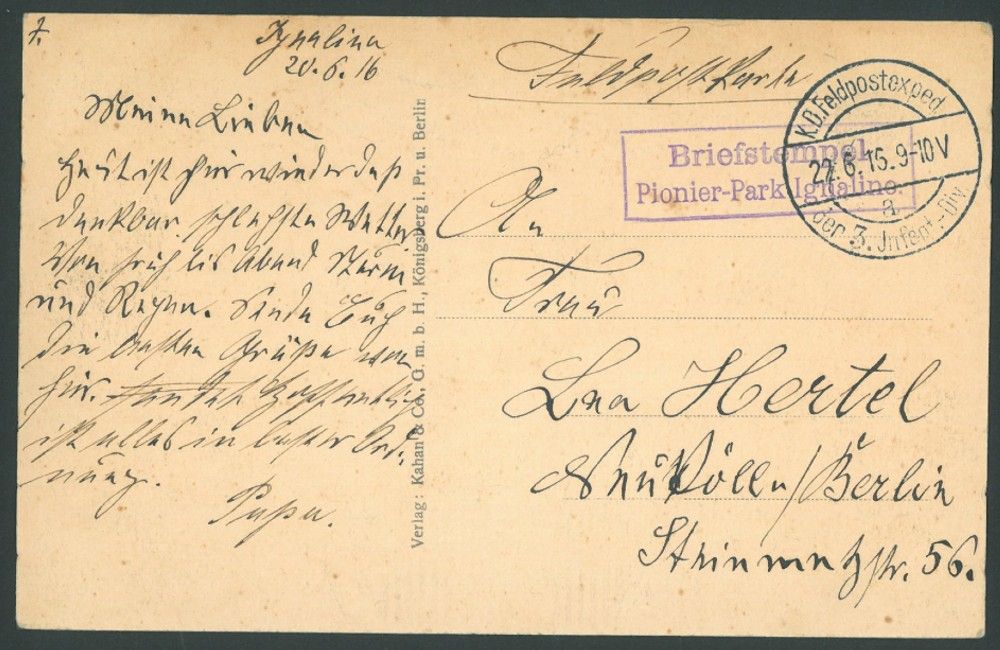 7.
Ignalina
20.6.16
Meine Lieben
Heut ist hier wieder das
denkbar schlechste Wetter
Von früh bis Abend Sturm
und Regen. Sende Euch
die besten Grüße von
hier. Hoffentlich
ist alles in bester Ord-
nung.
Papa.
Verlag: Kahan & Co., G. m. b. H., Königsberg i. Pr. u. Berlin
Feldpostkarte
Briefstempel
Pionier-Park Ignalino.
K.D. Feldpostexped.
22.6.15. 9-10 V
a
der 3. Infant.-Div
An
Frau
Lea Hertel
Neukölln/Berlin
Steinmetzstr. 56.